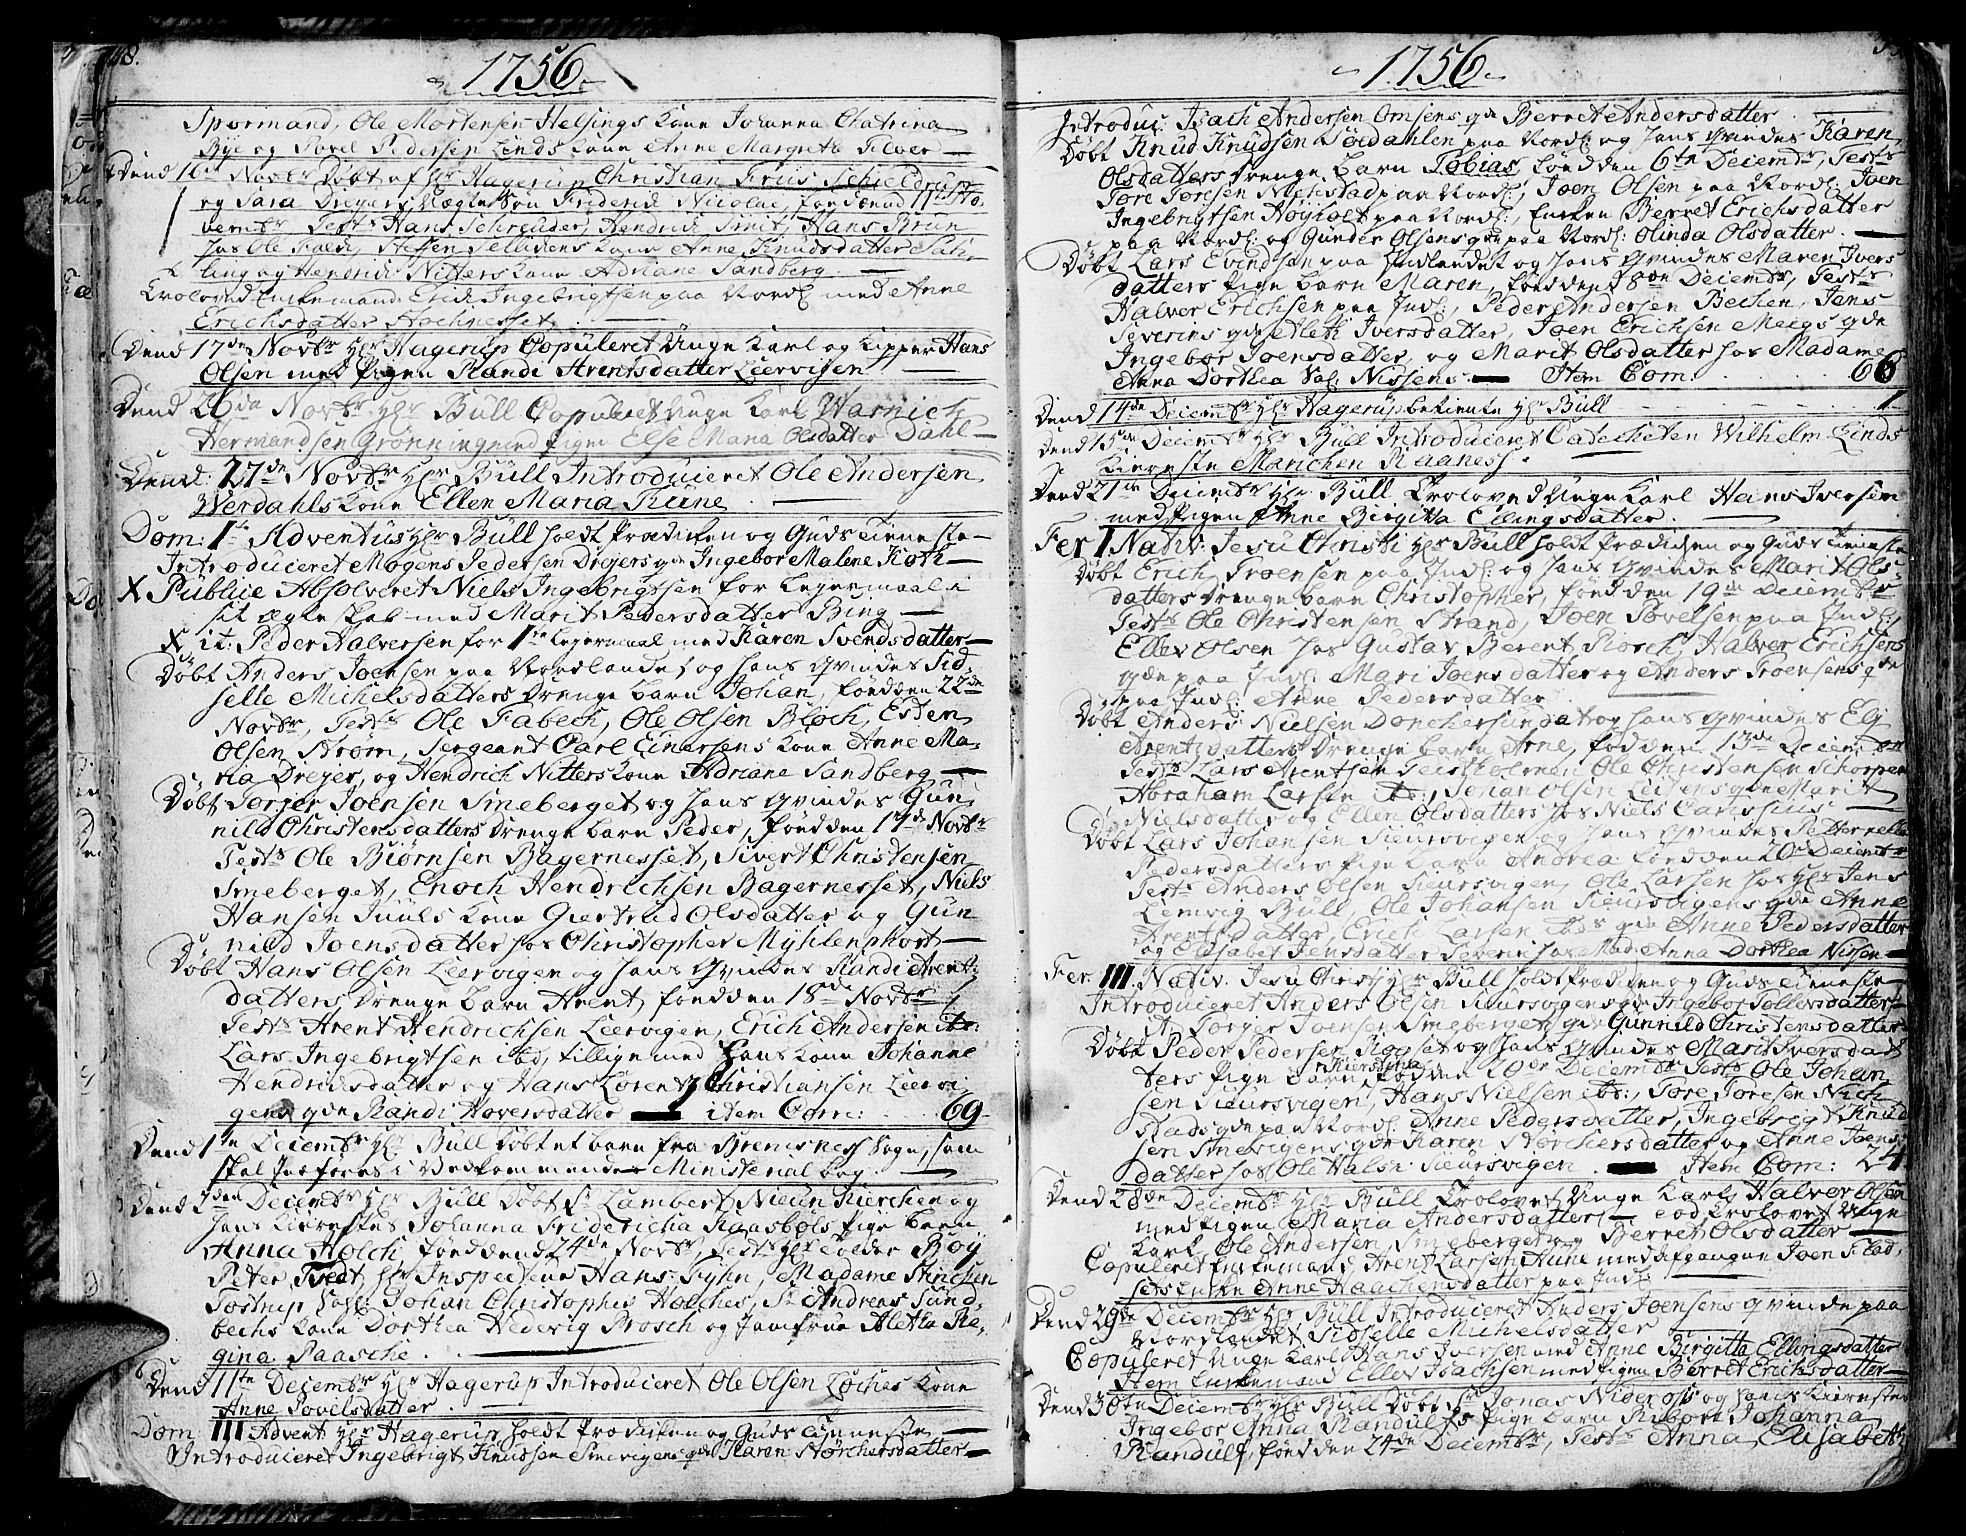 48.
1756
Spormand, Ole Mortensen Helsings Kone Johanna Chatrina
Bye og Povel Pedersen Linds Kone Anne Margreta Elver
Dend 16de Novbr Døbt af Hr Hagerup Christian Friis
og Sara Dreyers Ægte Søn Friderich Nicolai, fød dend 11te No,
vembr Test: Hans Schreüder, Hendrich Smit, Hans Brun
hos Ole Kone Anne Knudsdatter
ling og Hendrich Nitters Kone Adriane Sandberg.
Trolovet Enkemand Erich Ingebrigtsen paa Nordl: med Anne
Erichsdatter Hochnesset
Dend 17de Novbr Hr Hagerup Copuleret Unge Karl og Kipper Hans
Olsen med Pigen Randi Arentsdatter Leervigen
Dend 26de Novbr Hr Bull Copuleret Unge Karl Warnich
Hermandsen Grønning med Pigen Else Maria Olsdatter Dahl
Dend: 27de Novbr Hr Bull Introduceret Ole Andersen
Werdahls Kone Ellen Maria Rune
Dom: 1te Adventus Hr Bull holdt Prædiken og Guds tieneste
Introduceret Mogens Pedersen Dreyers qde Ingebor Malene Koth
X Publice Absolveret Niels Ingebrigtsen for Legermaal i
sit ægteskab med Marit Pedersdatter Bing
X it: Peder Halversen for 1te Legermaal med Karen Svendsdatter
Døbt Anders Joensen paa Nordlandet og hans Qvindes Sid,
selle Michelsdatters Drenge barn Johan, fød den 22de
Novbr, Test: Ole Fabech, Ole Olsen Bloch, Esten
Olsen Strøm, Sergeant Carl Einersens Kone Anne Ma,
ria Dreyer, og Hendrich Nitters Kone Adriane Sandberg
Døbt Torjer Joensen Smeberget og hans Qvindes Gun,
nild Christensdatters Drenge barn Peder, fød den 17de Novbr
Test: Ole Biørnsen Bagernesset, Sivert Christensen
Smeberget, Enoch Hendrichsen Bagernesset, Niels
Hansen Juuls Kone Giertrud Olsdatter og Gun,
nild Joensdatter hos Christopher Myhlenphort
Døbt Hans Olsen Leervigen og hans Qvindes Randi Arent,
datters Drenge barn Arent, fød den 18de Novbr
Test: Arent Hendrichsen Leervigen, Erich Andersen ib:
Lars Ingebrigtsen ibd, tillige med hans Kone Johanne
Hendrichsdatter og Hans Lorentz Christiansen Leervi
gens qde Randi Hoversdatter — item Com: 69
Dend 1te Decembr Hr Bull Døbt et barn fra Bremsness Sogn, som
skal indføres i Vedkommendes Ministerial bog.
Dend 2den Decembr Hr Bull Døbt Sr Lambert Nieün Kierchen og
hans Kierestes Johanna Fridericha Raasbøls Pige barn
Anna Holch, fød dend 24de Novbr, Test: Hr Tolder Boy
Peter Tvedt, Hr Inspecteur Hans Fyhn, Madame Stinchen
Tostrup, Sal: Johan Christopher Holches, Sr Andreas Sund,
bechs Kone Dorthea Hedevig Brosch og Jomfrue Aletha Re,
gina Paasche.
Dend 11te Decembr Hr Hagerup Introduceret Ole Olsen Loches Kone
Anne Povelsdatter.
Dom: III Advent Hr Hagerup holdt Prædiken og Guds tieneste
Introduceret Ingebrigt Knudsen Smevigens qde Karen Størchersdatter
1756
Introduc: Isach Andersen Omsens qde Berret Andersdatter
Døbt Knud Knudsen Sørdahlen paa Nordl: og hans Qvindes Karen
Olsdatters Drenge barn Tobias fød den 6te Decembr, Test:
Tore Toresen Nichstad paa Nordl:, Joen Olsen paa Nordl: Joen
Ingebrigtsen Høyholt paa Nordl:, Enken Berret Erichsdatter
paa Nordl: og Gunder Olsens qde paa Nordl: Olinda Olsdatter.
Døbt Lars Evindsen paa Indlandet og hans Qvindes Maren Ivers
datters Pige barn Maren, fød den 8de Decembr, Test:
Halver Erichsen paa Indl:, Peder Andersen Bechen, Jens
Severins qde Aleth Iversdatter, Joen Erichsen Meegs qde
Ingebor Joensdatter, og Marit Olsdatter hos Madame
Anna Dorthea Sal: Nissens. — Item Com: 66
Dend 14de Decembr Hr Hagerup betiente Hr Bull 1
Dend 15de Decembr Hr Bull Introduceret Catecheten Wilhelm Linds
Kiereste Marichen Raaness.
Dend 21de Decembr Hr Bull Trolovet Unge Karl Hans Iversen
med Pigen Anne Birgitta Ellingsdatter.
Fer I Nativ: Jesu Christi Hr Bull holdt Prædiken og Guds tieneste
Døbt Erich Troensen paa Indl: og hans Qvindes Marit Ols
datters Drenge barn Christopher, fød den 19de Decembr
Test: Ole Christensen Strand, Joen Povelsen paa Indl:,
Ellev Olsen hos Gustav Berent Rosch, Halver Erichsens
qde paa Indl: Mari Joensdatter og Anders Troensens qde
paa Indl: Anne Pedersdatter
Døbt Anders Nielsen Donchersundet og hans Qvindes Eli
Arentsdatters Drenge barn Arne, fød den 13de Decembr
Test: Lars Arentsen Teistholmen Ole Christensen Schorpen
Abraham Larsen ib:, Johan Olsen Leisens qde Marit
Nielsdatter og Ellen Olsdatters hos Niels Carlssius
Døbt Lars Johansen Sieursvigen og hans Qvindes Petternella
Pedersdatters Pige barn Andrea fød den 20de Decembr
Test: Anders Olsen Sieursvigen, Ole Larsen hos Hr Jens
Lemvig Bull, Ole Johansen Sieursvigens qde Anne
Arentsdatter, Erich Larsen ibds qde Anne Pedersdatter
og Elisabet Jensdatter Severin hos Mad: Anna Dorthea Nissen
Fer III. Nativ. Jesu Christi Hr Bull holdt Prædiken og Guds tieneste
Introduceret Anders Olsen Sieursvigens qde Ingebor Tollevsdatter
it Torger Joensen Smebergets qde Gunnild Christensdatter
Døbt Peder Pedersen og hans Qvindes Marit Iversdat
ters Pige barn Kierstina, fød den 20de Decembr Test: Ole Johan
sen Sieursvigen, Hans Nielsen ib:, Tore Toresen Nich
stads qde paa Nordl: Anne Pedersdatter, Ingebrigt Knud
sen Smevigens qde Karen Størchersdatter og Anne Joens
datter hos Ole Halsn: Sieursvigen. — Item Com: 24
Dend 28de Decembr Hr Bull Trolovet Unge Karl Halvor Olsen
med Pigen Maria Andersdatter — eod Trolovet Unge
Karl Ole Andersen Smeberget og Berret Olsdatter
Copuleret Enkemand Arent Larsen Aune med afgangne Joen Flad,
sets Enke Anne Haachensdatter paa Indl:
Dend 29de Decembr Hr Bull Introduceret Anders Joensens Qvinde paa
Nordlandet Sidselle Michelsdatter
Copuleret Unge Karl Hans Iversen med Anne Birgitta Ellingsdatter
Item Enkemand Ellev Isachsen med Pigen Berret Erichsdatter
Dend 30te Decembr Hr Bull Døbt Sr Jonas Nideross og hans Kierestes
Ingebor Anna Randulfs Pige barn Riborg Johanna
Randulf, fød den 24de Decembr, Test: Anna Elisabeth